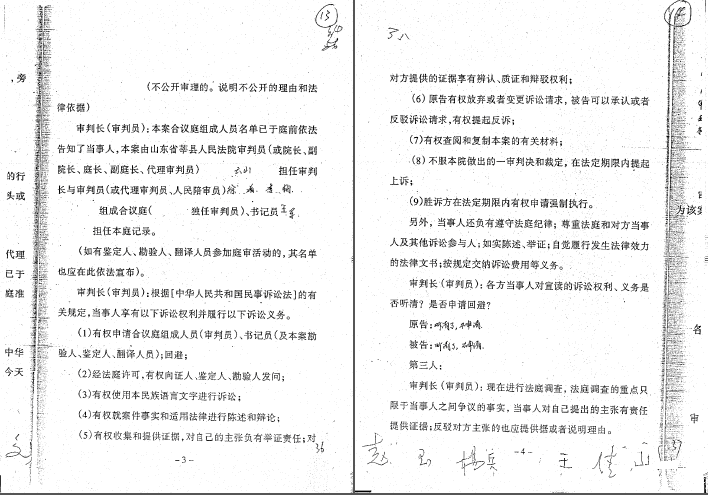 13
(不公开审理的。说明不公开的理由和法
律依据)
审判长(审判员):本案合议庭组成人员名单已于庭前依法
告知了当事人,本案由山东省莘县人民法院审判员(或院长、副
院长、庭长、副庭长、代理审判员) 担任审判
长与审判员(或代理审判员、人民陪审员)
组成合议庭( 独任审判员)、书记员
担任本庭记录。
(如有鉴定人、勘验人、翻译人员参加庭审活动的,其名单
也应在此依法宣布)。
审判长(审判员):根据[中华人民共和国民事诉讼法]的有
关规定,当事人享有以下诉讼权利并履行以下诉讼义务。
(1)有权申请合议庭组成人员(审判员)、书记员(及本案勘
验人、鉴定人、翻译人员);回避;
(2)经法庭许可,有权向证人、鉴定人、勘验人发问;
(3)有权使用本民族语言文字进行诉讼;
(4)有权就案件事实和适用法律进行陈述和辩论;
(5)有权收集和提供证据,对自己的主张负有举证责任;对
36
-3-
,旁
的行
头或
代理
已于
庭准
中华
今天
14
对方提供的证据享有辨认、质证和辩驳权利;
(6)原告有权放弃或者变更诉讼请求,被告可以承认或者
反驳诉讼请求,有权提起反诉;
(7)有权查阅和复制本案的有关材料;
(8)不服本院做出的一审判决和裁定,在法定期限内提起
上诉;
(9)胜诉方在法定期限内有权申请强制执行。
另外,当事人还负有遵守法庭纪律;尊重法庭和对方当事
人及其他诉讼参与人;如实陈述、举证;自觉履行发生法律效力
的法律文书;按规定交纳诉讼费用等义务。
审判长(审判员):各方当事人对宣读的诉讼权利、义务是
否听清?是否申请回避?
原告:听清了,不申请
被告:听清了,不申请
第三人:
审判长(审判员):现在进行法庭调查,法庭调查的重点只
限于当事人之间争议的事实,当事人对自己提出的主张有责任
提供证据;反驳对方主张的也应提供据或者说明理由。
-4-
为该案
各
审